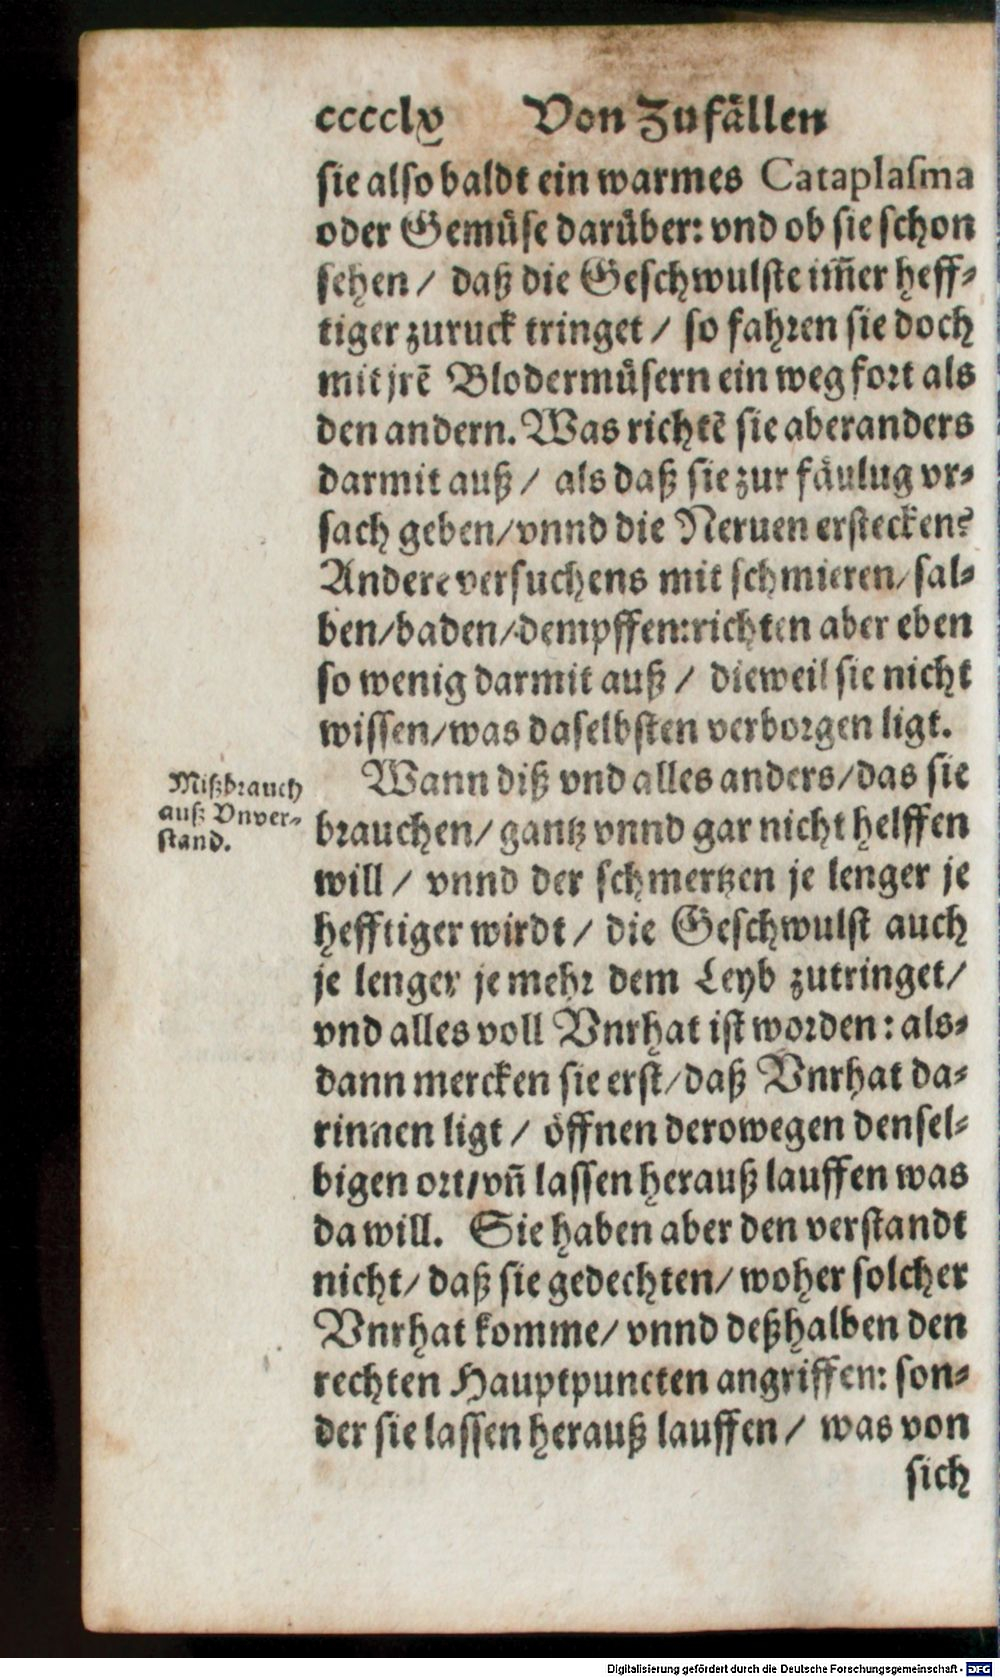 cccclv Von Zufällen
sie also baldt ein warmes Cataplasma
oder Gemüse darüber: vnd ob sie schon
sehen / daß die Geschwulste im̃er heff-
tiger zuruck tringet / so fahren sie doch
mit jrẽ Blodermüsern ein weg fort als
den andern. Was richtẽ sie aber anders
darmit auß / als daß sie zur fäulug vr-
sach geben / vnnd die Neruen erstecken?
Andere versuchens mit schmieren / sal-
ben / baden / dempffen: richten aber eben
so wenig darmit auß / dieweil sie nicht
wissen / was daselbsten verborgen ligt.
Mißbrauch
auß Vnver-
stand.
Wann diß vnd alles anders / das sie
brauchen / gantz vnnd gar nicht helffen
will / vnnd der schmertzen je lenger je
hefftiger wirdt / die Geschwulst auch
je lenger je mehr dem Leyb zutringet /
vnd alles voll Vnrhat ist worden: als-
dann mercken sie erst / daß Vnrhat da-
rinnen ligt / öffnen derowegen densel-
bigen ort / vñ lassen herauß lauffen was
da will. Sie haben aber den verstandt
nicht / daß sie gedechten / woher solcher
Vnrhat komme / vnnd deßhalben den
rechten Hauptpuncten angriffen: son-
der sie lassen herauß lauffen / was von
sich
Digitalisierung gefördert durch die Deutsche Forschungsgemeinschaft - DFG